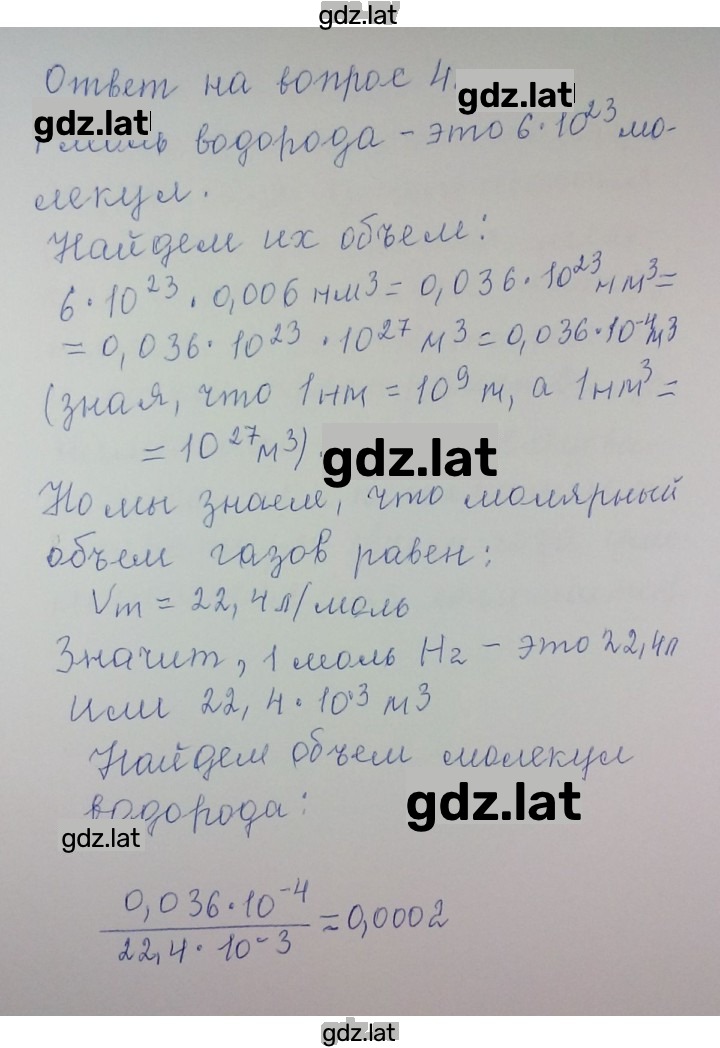 gdz.lat
Ответ на вопрос 4.
gdz.lat
gdz.lat
моль водорода - это 6·10²³ мо-
лекул.
Найдем их объем:
6·10²³·0,006 нм³ = 0,036·10²³ нм³ =
= 0,036·10²³·10²⁷ м³ = 0,036·10⁻⁴ м³
(зная, что 1нm = 10⁹ m, а 1нm³ =
= 10²⁷ м³).
gdz.lat
Но мы знаем, что молярный
объем газов равен:
Vm = 22,4 л/моль
Значит, 1 моль H₂ - это 22,4л
или 22,4·10⁻³ м³
Найдем объем молекул
водорода:
gdz.lat
gdz.lat
0,036·10⁻⁴
22,4·10⁻³ ≈ 0,0002
gdz.lat